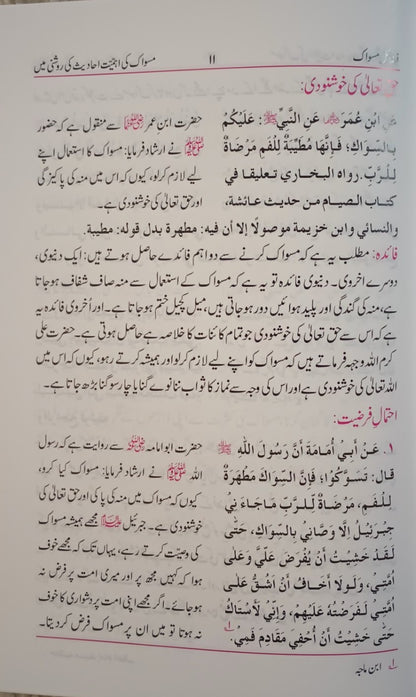 فضائل مسواک ۱۱ مسواک کی اہمیت احادیث کی روشنی میں
تعالیٰ کی خوشنودی:
عَنِ ابْنِ عُمَرَ ﷠ عَنِ النَّبِيِّ ﷺ: عَلَيْكُمْ
بِالسِّوَاكِ؛ فَإِنَّهَا مُطَيِّبَةٌ لِّلْفَمِ مَرْضَاةٌ
لِّلرَّبِّ. رواه البخاري تعليقا في
كتاب الصيام من حديث عائشة،
والنسائي وابن خزيمة موصولًا إلا أن فيه: مطهرة بدل قوله: مطيبة.
حضرت ابن عمر ﷠ سے منقول ہے کہ حضور
ﷺ نے ارشاد فرمایا: مسواک کا استعمال اپنے
لیے لازم کرلو، کیوں کہ اس میں منہ کی پاکیزگی
اور حق تعالیٰ کی خوشنودی ہے۔
فائدہ: مطلب یہ ہے کہ مسواک کرنے سے دو اہم فائدے حاصل ہوتے ہیں: ایک دنیوی،
دوسرے اخروی۔ دنیوی فائدہ تو یہ ہے کہ مسواک کے استعمال سے منہ صاف شفاف ہوجاتا
ہے، منہ کی گندگی اور پلید ہوائیں دور ہوجاتی ہیں، میل کچیل ختم ہوجاتا ہے۔ اور اُخروی فائدہ یہ
ہے کہ اس سے حق تعالیٰ کی خوشنودی جو تمام کائنات کا خلاصہ ہے حاصل ہوتی ہے۔ حضرت علی
کرم اللہ وجہہ فرماتے ہیں کہ مسواک کو اپنے لیے لازم کرلو اور ہمیشہ کرتے رہو، کیوں کہ اس میں
اللہ تعالیٰ کی خوشنودی ہے اور اس کی وجہ سے نماز کا ثواب ننانوے گنا یا چار سو گنا بڑھ جاتا ہے۔
احتمالِ فرضیت:
۱. عَنْ أَبِيْ أُمَامَةَ أَنَّ رَسُوْلَ اللّٰهِ ﷺ
قَالَ: تَسَوَّكُوْا؛ فَإِنَّ السِّوَاكَ مَطْهَرَةٌ
لِّلْفَمِ، مَرْضَاةٌ لِّلرَّبِّ مَا جَاءَ نِيْ
جِبْرَئِيْلُ إِلَّا وَصَّانِيْ بِالسِّوَاكِ، حَتّٰى
لَقَدْ خَشِيْتُ أَنْ يُّفْرَضَ عَلَيَّ وَعَلٰى
أُمَّتِيْ، وَلَوْلَا أَخَافُ أَنْ أَشُقَّ عَلٰى
أُمَّتِيْ لَفَرَضْتُهُ عَلَيْهِمْ، وَإِنِّيْ لَأَسْتَاكُ
حَتّٰى خَشِيْتُ أَنْ أُحْفِيَ مَقَادِمَ فَمِيْ. ۱؎
حضرت ابوامامہ ﷜ سے روایت ہے کہ رسول
اللہ ﷺ نے ارشاد فرمایا: مسواک کیا کرو،
کیوں کہ مسواک میں منہ کی پاکی اور حق تعالیٰ کی
خوشنودی ہے۔ جبرئیل علیہ السلام مجھے ہمیشہ مسواک
کی وصیت کرتے رہے، یہاں تک کہ مجھے خوف
ہوا کہ کہیں مجھ پر اور میری امت پر فرض نہ
ہوجائے۔ اگر مجھے اپنی امت پر دشواری کا خوف
نہ ہوتا تو میں ان پر مسواک فرض کردیتا۔
۱؎ ابن ماجہ